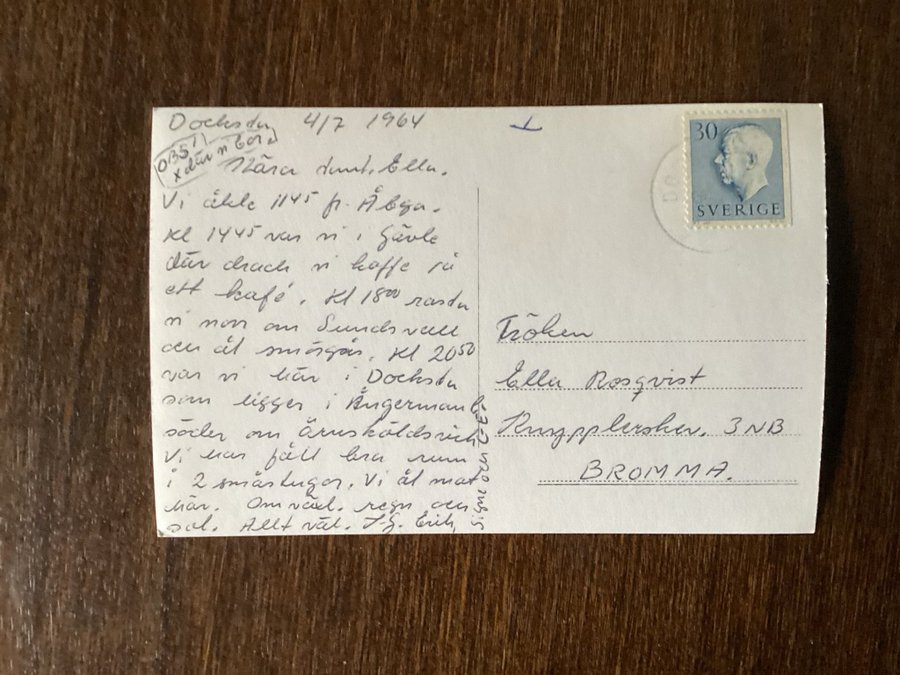 Docksta 4/7 1964
OBS!
x där vi bor
Kära tant Ella.
Vi åkte 1145 fr. Åbga.
Kl 1445 var vi i Gävle
där drack vi kaffe på
ett kafé. Kl 18⁰⁰ rasta
vi norr om Sundsvall
och åt smörgås. Kl 20⁵⁰
var vi här i Docksta
som ligger i Ångermanl.
söder om Örnsköldsvik
Vi har fått bra rum
i 2 småstugor. Vi åt mat
här. Omväxl. regn och
sol. Allt väl. Erik,
Signe och
30
SVERIGE
DO
Fröken
Ella Rosqvist
3 NB
BROMMA.